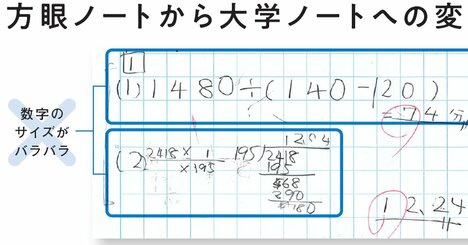 方眼ノートから大学ノートへの変
数字の
サイズが
バラバラ
1
(1) 1480÷(140-120)
=74分
(2) 2418×1
×195
12.04
195)2418
195
468
390
780
12.24